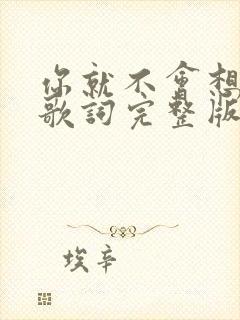 你就不會想
歌詞完整版
埃辛